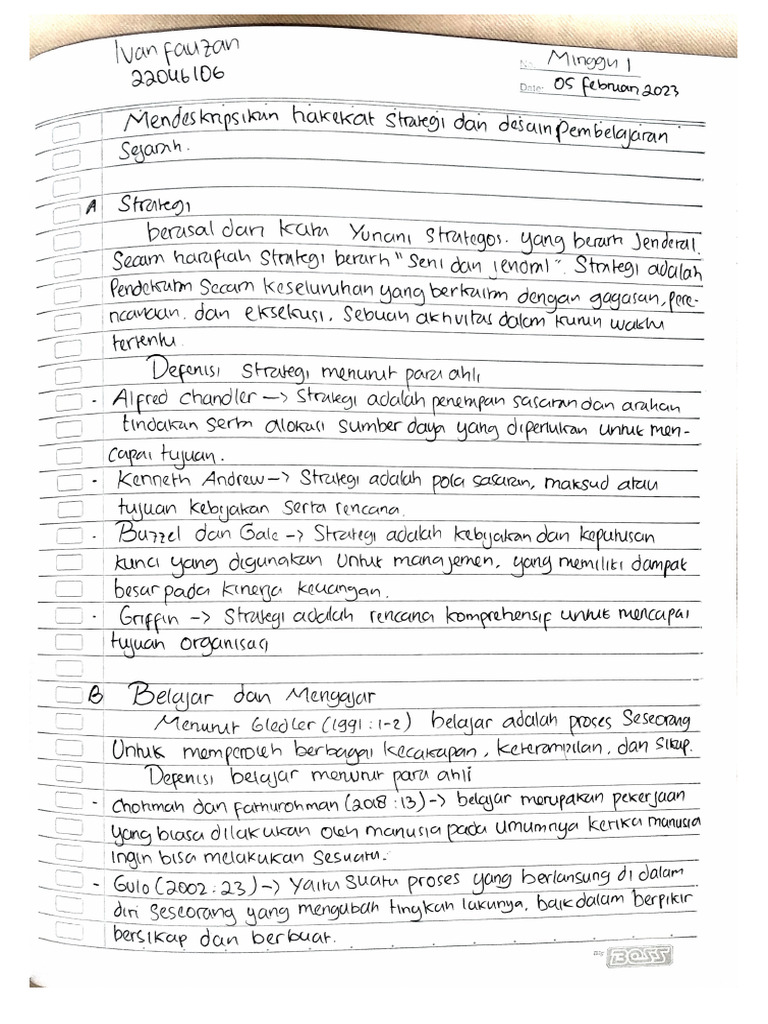 Ivan fauzan
22046106
No. Minggu 1
Date: 05 februari 2023
Mendeskripsikan hakekat strategi dan desain pembelajaran
Sejarah.
A Strategi
berasal dari kata Yunani strategos. yang berarti Jenderal.
Secara harafiah strategi berarti "seni dan jenoral". Strategi adalah
pendekatan secara keseluruhan yang berkaitan dengan gagasan, pere-
ncanaan. dan eksekusi. Sebuah aktivitas dalam kurun waktu
tertentu.
Defenisi strategi menurut para ahli
- Alfred chandler -> Strategi adalah penempan sasaran dan arahan
tindakan serta alokasi sumber daya yang diperlukan untuk men-
capai tujuan.
- Kenneth Andrew -> Strategi adalah pola sasaran, maksud atau
tujuan kebijakan serta rencana.
- Buzzel dan Gale -> Strategi adalah kebijakan dan keputusan
kunci yang digunakan untuk manajemen, yang memiliki dampat
besar pada kinerja keuangan.
- Griffin -> Strategi adalah rencana komprehensif untuk mencapai
tujuan organisasi
B Belajar dan Mengajar
Menurut Gledler (1991 : 1-2) belajar adalah proses seseorang
Untuk memperoleh berbagai kecakapan, keterampilan, dan sikap.
Defenisi belajar menurut para ahli
- Chohmah dan faturohman (2018 : 13) -> belajar merupakan pekerjaan
yang biasa dilakukan oleh manusia pada umumnya ketika manusia
ingin bisa melakukan sesuatu.
- Gulo (2002 : 23) -> yaitu suatu proses yang berlansung di dalam
diri seseorang yang mengubah tingkah lakunya, baik dalam berpikir
bersikap dan berbuat.
BOSS